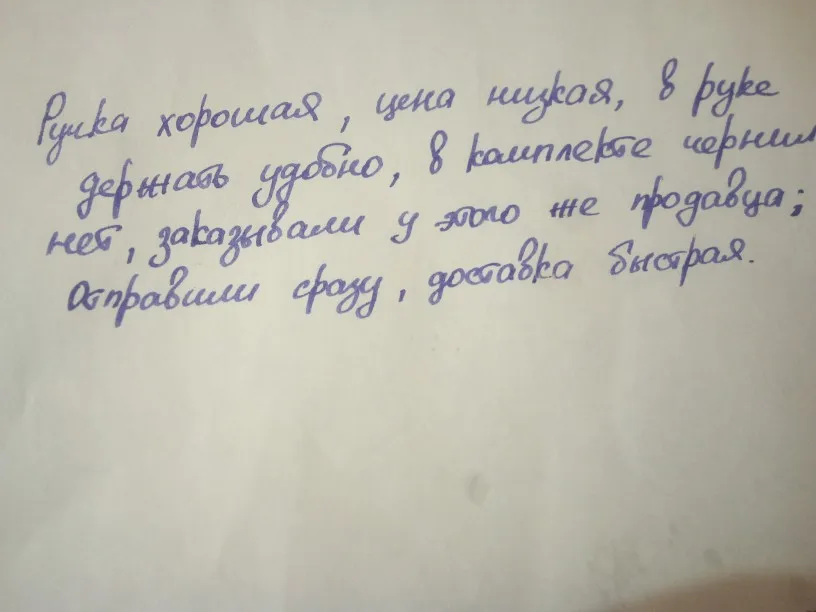 Ручка хорошая, цена низкая, в руке
держать удобно, в комплекте чернил
нет, заказывали у этого же продавца;
отправили сразу, доставка быстрая.